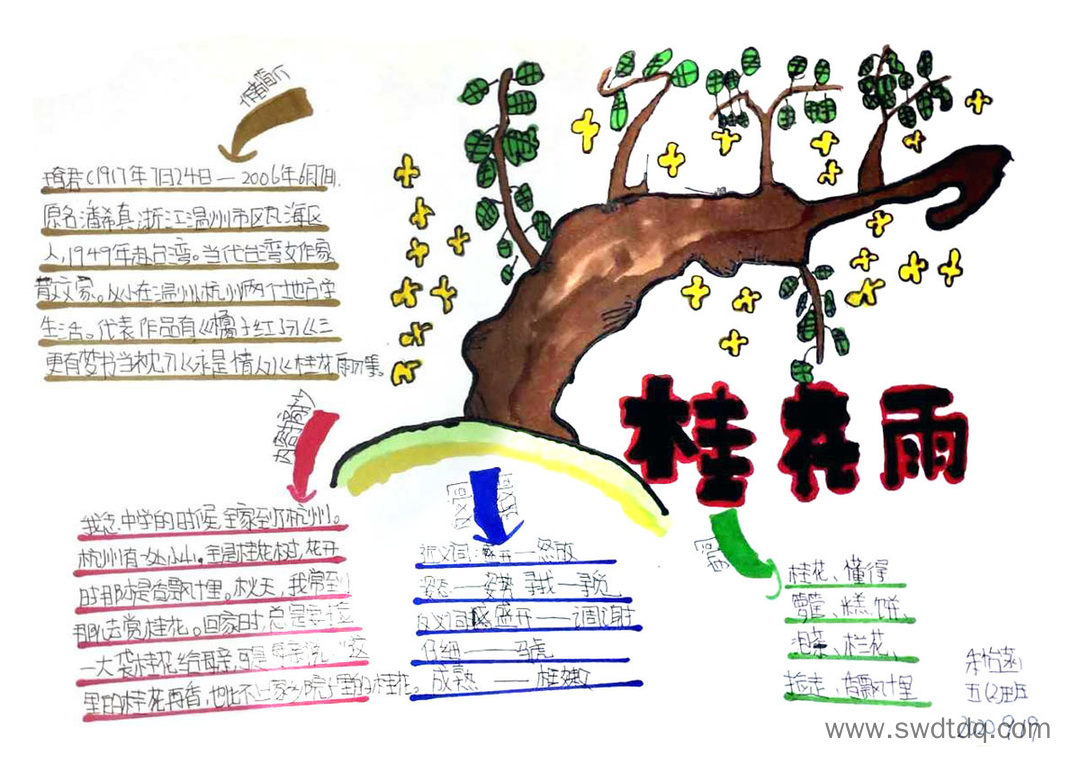 作者简介
琦君(1917年7月24日—2006年6月7日).
原名潘希真,浙江温州市区瓯海区
人,1949年赴台湾。当代台湾女作家
散文家。从小在温州、杭州两个地方学
生活。代表作品有《橘子红了》《三
更有梦书当枕》《永是情人》《桂花雨》集。
内容简介
我念中学的时候,全家到了杭州。
杭州有一处小山,全是桂花树,花开
时那才是香飘十里。秋天,我常到
那儿去赏桂花。回家时,总是要捡
一大袋桂花给母亲,可是母亲说:"这
里的桂花再香,也比不上家乡院子里的桂花。
近义词
反义词
近义词:盛开—怒放
姿态—姿势 寻找—寻觅
反义词:盛开——凋谢
仔细——马虎
成熟——稚嫩
桂花雨
词语
桂花、懂得
箩筐、糕饼、
泡茶、栏花、
捡走、香飘十里
五(2)班
2020.9.19
www.swdtdq.com